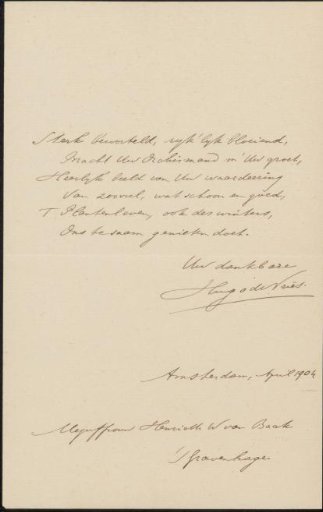 Sterk beworteld, rijk'lijk bloeiend,
Bracht Uw Orchismand m' Uw groet,
Heerlijk beeld van Uw waardeering
Van zooveel, wat schoon en goed,
'T Plantenleven, ook des winters,
Ons te saam genieten doet.
Uw dankbare
Hugo de Vries
Amsterdam, April 1904
Mejuffrouw Henriette W van Baak
's Gravenhage